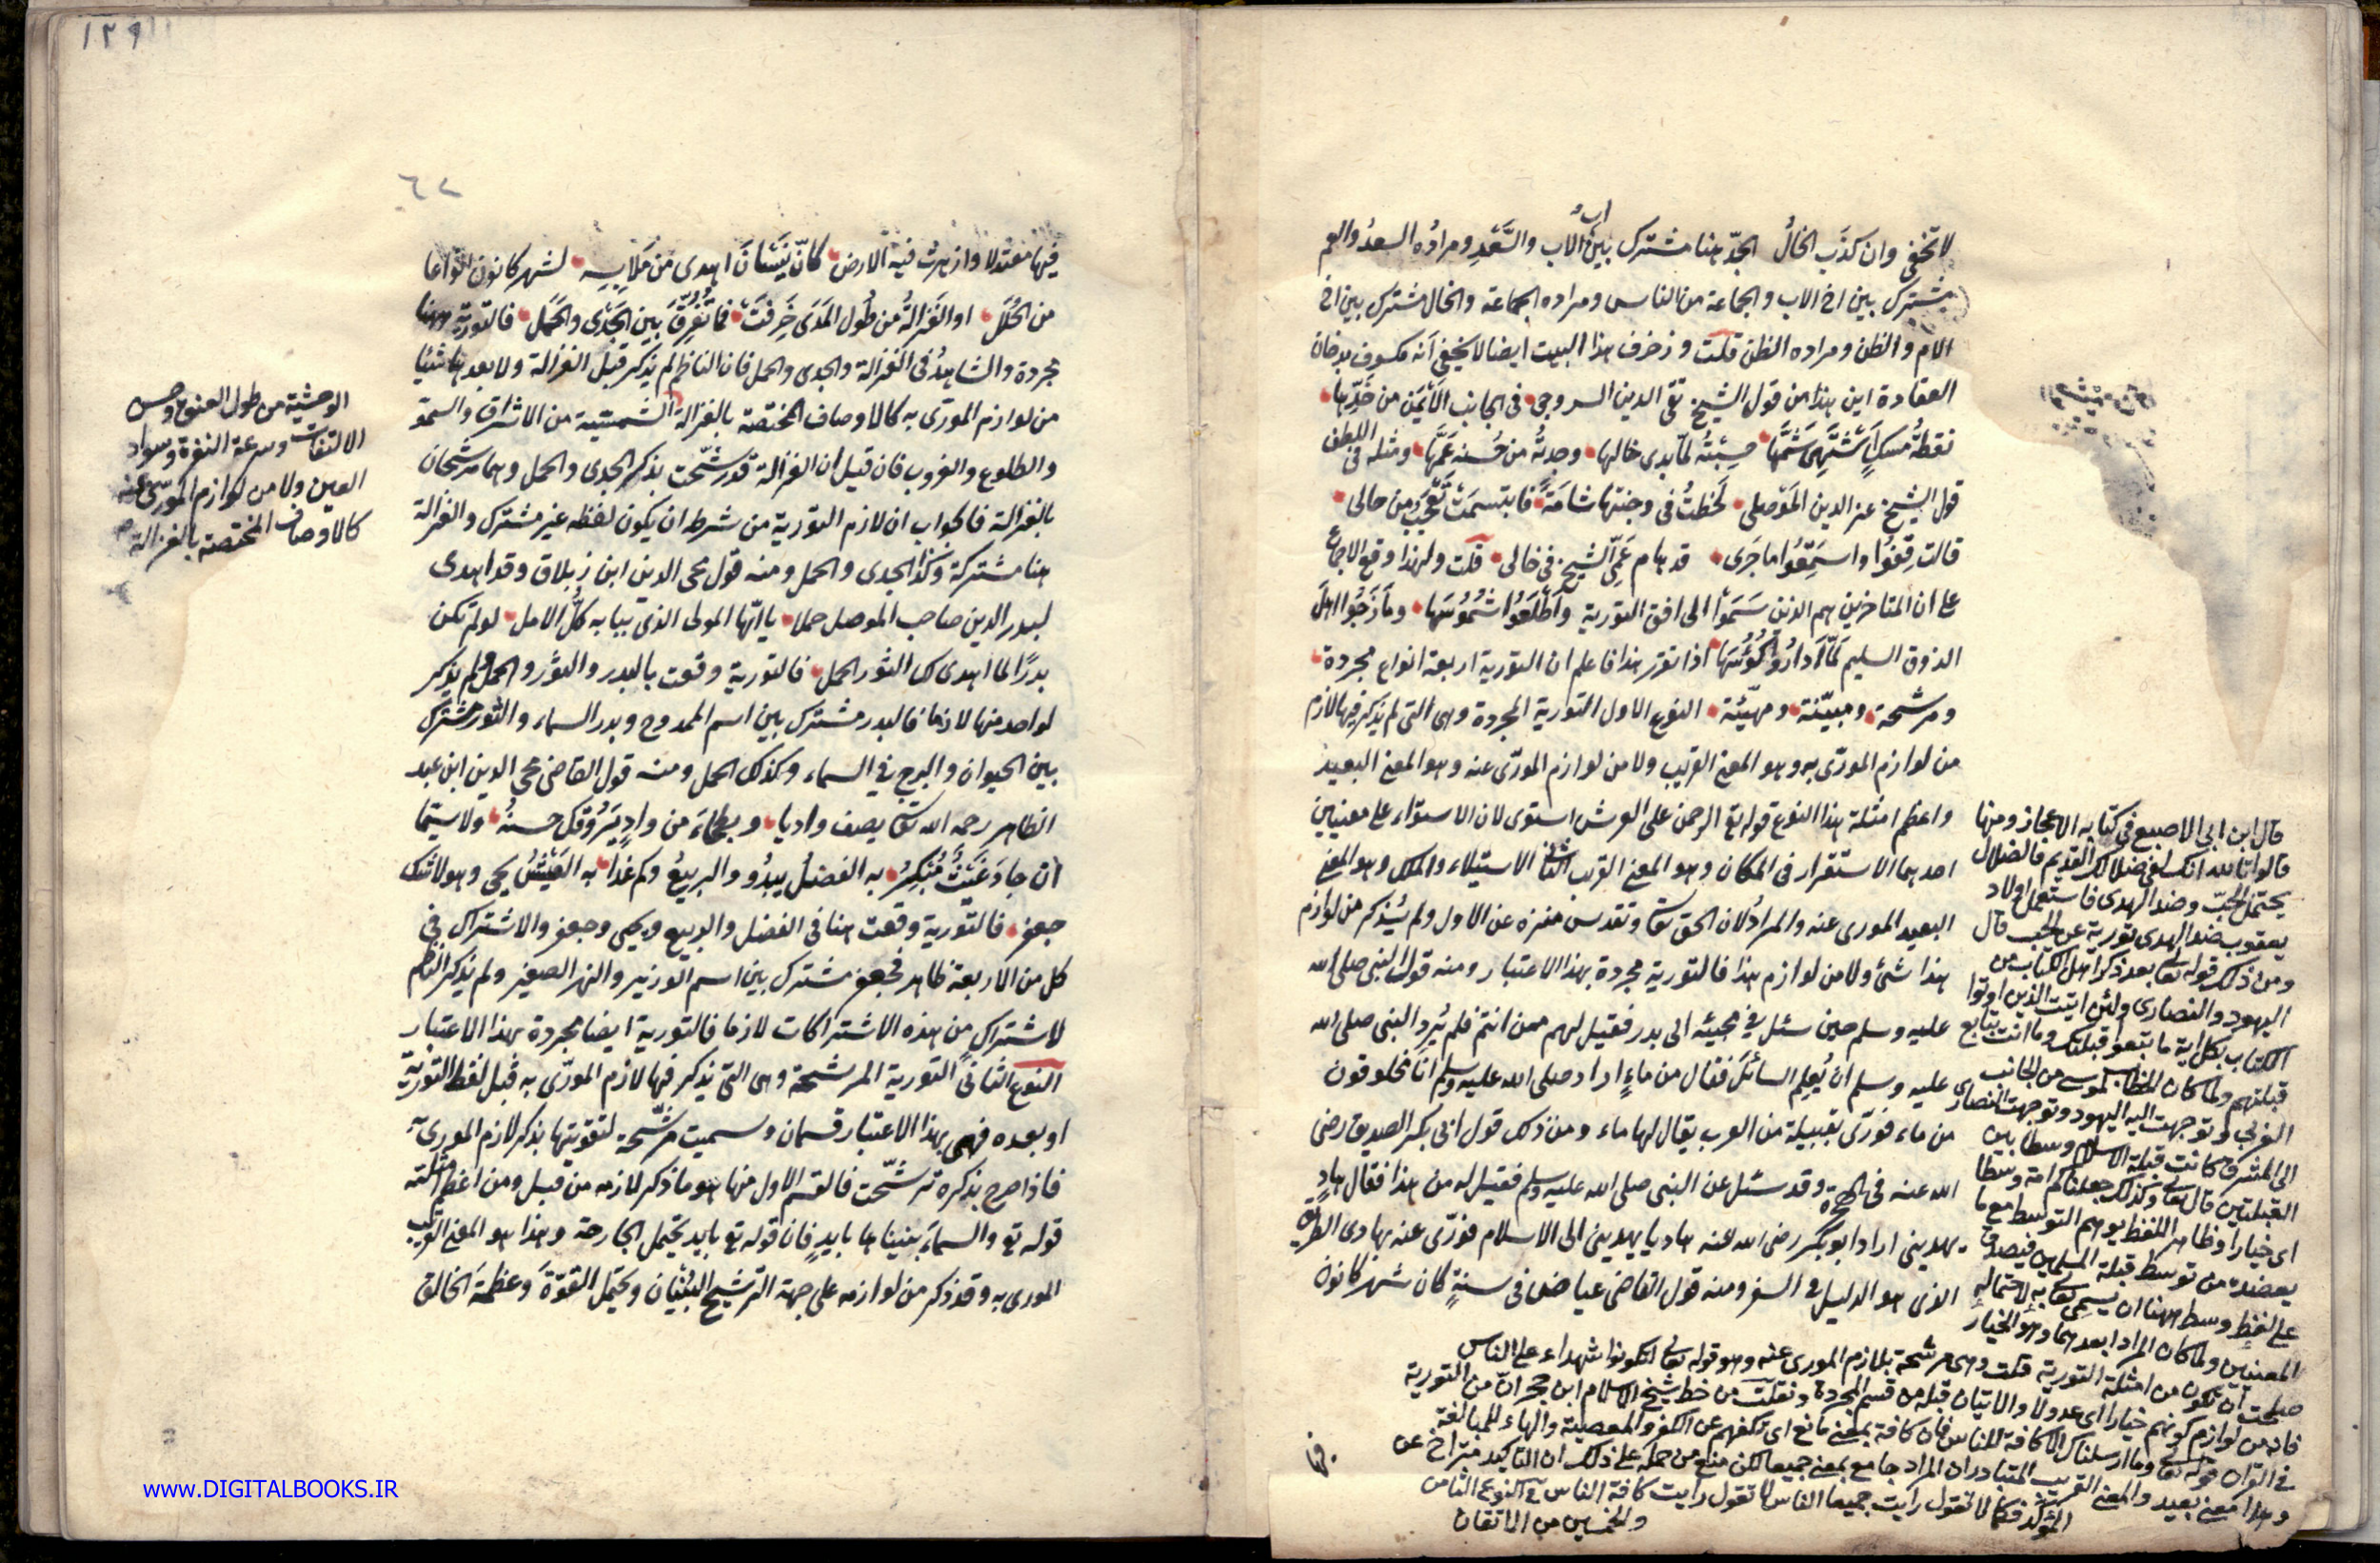 لا تخفى وان كذب الخال الجد هنا مشترك بين اب الاب والسعد ومراده السعد والعم
مشترك بين اخ الاب والجماعة من الناس ومراده الجماعة والخال مشترك بين اخ
الام والظن ومراده الظن قلت وزخرف هذا البيت ايضا لا يخفى انه مكسوف بدخان
العقادة اين هذا من قول الشيخ تقي الدين السروجي في الجانب الايمن من خدها
نقطة مسك اشتهى شمها حسبته لما بدى خالها وجدته من حسنه عمها ومثله في اللطف
قول الشيخ عز الدين الموصلي لحظت في وجنتها شامة فابتسمت تعجب من حالي
قالت قفوا واستمعوا ما جرى قد هام عمي الشيخ في خالي قلت ولهذا وقع الاجماع
على ان المتاخرين هم الذين سموا الى افق التورية واطلعوا شموسها وما زجوا اهل
الذوق السليم لما اداروا كؤسها اذا تقرر هذا فاعلم ان التورية اربعة انواع مجردة
ومرشحة ومبينة ومهيئة النوع الاول التورية المجردة وهى التي لم يذكر فيها لازم
من لوازم المورى به وهو المعنى القريب ولا من لوازم المورى عنه وهو المعنى البعيد
واعظم امثلة هذا النوع قوله تع الرحمن على العرش استوى لان الاستواء على معنيين
احدهما الاستقرار في المكان وهو المعنى القريب الثاني الاستيلاء والملك وهو المعنى
البعيد المورى عنه والمراد لان الحق تعا وتقدس منزه عن الاول ولم يذكر من لوازم
هذا شئ ولا من لوازم هذا فالتورية مجردة بهذا الاعتبار ومنه قول النبى صلى الله
عليه وسلم حين سئل في مجيئه الى بدر فقيل لهم ممن انتم فلم يرد النبى صلى الله
عليه وسلم ان يعلم السائل فقال من ماء اراد صلى الله عليه وسلم انا مخلوقون
من ماء فورى بقبيلة من العرب يقال لها ماء ومن ذلك قول ابى بكر الصديق رضى
الله عنه في الهجرة وقد سئل عن النبى صلى الله عليه وسلم فقيل له من هذا فقال هاد
يهديني اراد ابو بكر رضى الله عنه هاديا يهديني الى الاسلام فورى عنه بهادى الطريق
الذى هو الدليل في السفر ومنه قول القاضى عياض في سنة كان شهر كانون
قال ابن ابى الاصبع في كتابه الاعجاز ومنها
قالوا تالله انك لفى ضلالك القديم فالضلال
يحتمل الحب وضد الهدى فاستعمل اولاد
يعقوب ضد الهدى تورية عن الحب قال
ومن ذلك قوله تعا بعد ذكر اهل الكتاب من
اليهود والنصارى ولئن اتيت الذين اوتوا
الكتاب بكل اية ما تبعوا قبلتك وما انت بتابع
قبلتهم ولما كان الخطاب لموسى من الجانب
الغربى وتوجهت اليه اليهود وتوجهت النصارى
الى المشرق كانت قبلة الاسلام وسطا بين
القبلتين قال تعا وكذلك جعلناكم امة وسطا
اى خيارا وظاهر اللفظ يوهم التوسط مع ما
يعضده من توسط قبلة المسلمين فيصدق
على لفظ وسط ههنا ان يسمى تعا به لاحتماله
المعنيين ولما كان المراد ابعدهما وهو الخيار
صلحت ان تكون من امثلة التورية قلت وهى مرشحة بلازم المورى عنه وهو قوله تعا لتكونوا شهداء على الناس
فانه من لوازم كونهم خيارا اى عدولا والاتيان قبله من قسم المجردة ونقلت من خط شيخ الاسلام ابن حجر ان من التورية
في القران قوله تعا وما ارسلناك الا كافة للناس فان كافة بمعنى مانع اى تكفهم عن الكفر والمعصية والهاء للمبالغة
وهذا معنى بعيد والمعنى القريب المتبادر ان المراد جامع بمعنى جميعا لكن منع من حمله على ذلك ان التاكيد يتراخ عن
المؤكد فكما لا تقول رايت جميعا الناس لا تقول رايت كافة الناس في النوع الثامن
والخمسين من الاتقان
فيها
١٢٩
٦٢
فيها معتدلا وازهرت فيه الارض كان نيسان اهدى من ملابسه لشهر كانون انواعا
من الحلل او الغزالة من طول المدى خرفت فما تفرق بين الجدى والحمل فالتورية ههنا
مجردة والشاهد في الغزالة والجدى والحمل فان الناظم لم يذكر قبل الغزالة ولا بعدها شيئا
من لوازم المورى به كالاوصاف المختصة بالغزالة الشمسية من الاشراق والسمو
والطلوع والغروب فان قيل ان الغزالة قد رشحت بذكر الجدى والحمل وهما مرشحان
بالغزالة فالجواب ان لازم التورية من شرطه ان يكون لفظه غير مشترك والغزالة
هنا مشتركة وكذا الجدى والحمل ومنه قول محى الدين ابن زبلاق وقد اهدى
لبدر الدين صاحب الموصل حملا يا ايها المولى الذى ببابه كل الامل لو لم تكن
بدرا لما اهدى لك الثور الحمل فالتورية وقعت بالبدر والثور والحمل ولم يذكر
لواحد منها لازما فالبدر مشترك بين اسم الممدوح وبدر السماء والثور مشترك
بين الحيوان والبرج في السماء وكذلك الحمل ومنه قول القاضى محي الدين ابن عبد
الظاهر رحمه الله تعا يصف واديا وبطحاء من واد يروقك حسنه ولا سيما
ان جاد غيث مبكر به الفضل يبدو والربيع وكم غدا به العيش يحيى وهو لا شك
جعفر فالتورية وقعت هنا في الفضل والربيع ويحيى وجعفر والاشتراك في
كل من الاربعة ظاهر فجعفر مشترك بين اسم الوزير والنهر الصغير ولم يذكر الناظم
لاشتراك من هذه الاشتراكات لازما فالتورية ايضا مجردة بهذا الاعتبار
النوع الثانى التورية المرشحة وهى التى يذكر فيها لازم المورى به قبل لفظ التورية
او بعده فهى بهذا الاعتبار قسمان وسميت مرشحة لتقويتها بذكر لازم المورى به
فاذا صرح بذكره ترشحت فالقسم الاول منها هو ما ذكر لازمه من قبل ومن اعظم امثلته
قوله تع والسماء بنيناها بايد فان قوله تع بايد يحتمل الجارحة وهذا هو المعنى القريب
المورى به وقد ذكر من لوازمه على جهة الترشيح البنيان ويحتمل القوة وعظمة الخالق
الوحشية من طول العنق وحسن
الالتفات وسرعة النفرة وسواد
العين ولا من لوازم المورى عنه
كالاوصاف المختصة بالغزالة
www.DIGITALBOOKS.IR